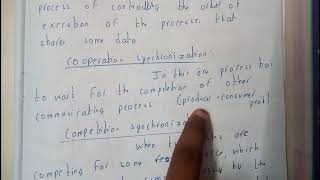 process of controlling the order of
execution of the processes that
shares some data
cooperation synchronization
In this one process has
to wait for the completion of other
communicating process (producer-consumer
prob)
Competition synchronization
When
are
competing for some
which